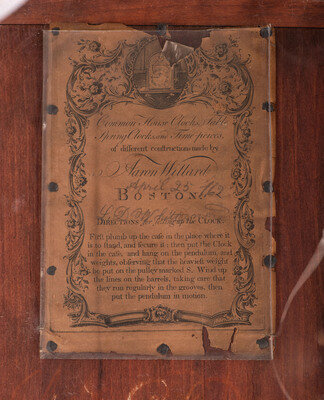 Common House Clocks, Table
Spring Clocks, and Time-pieces,
of different constructions made by
Aaron Willard
April 25
BOSTON
DIRECTIONS for the CLOCK.
First plumb up the case in the place where it
is to stand, and secure it; then put the Clock
in the case, and hang on the pendulum, and
weights, obſerving that the heavieſt weight
be put on the pulley marked S. Wind up
the lines on the barrels, taking care that
they run regularly in the grooves, then
put the pendulum in motion.